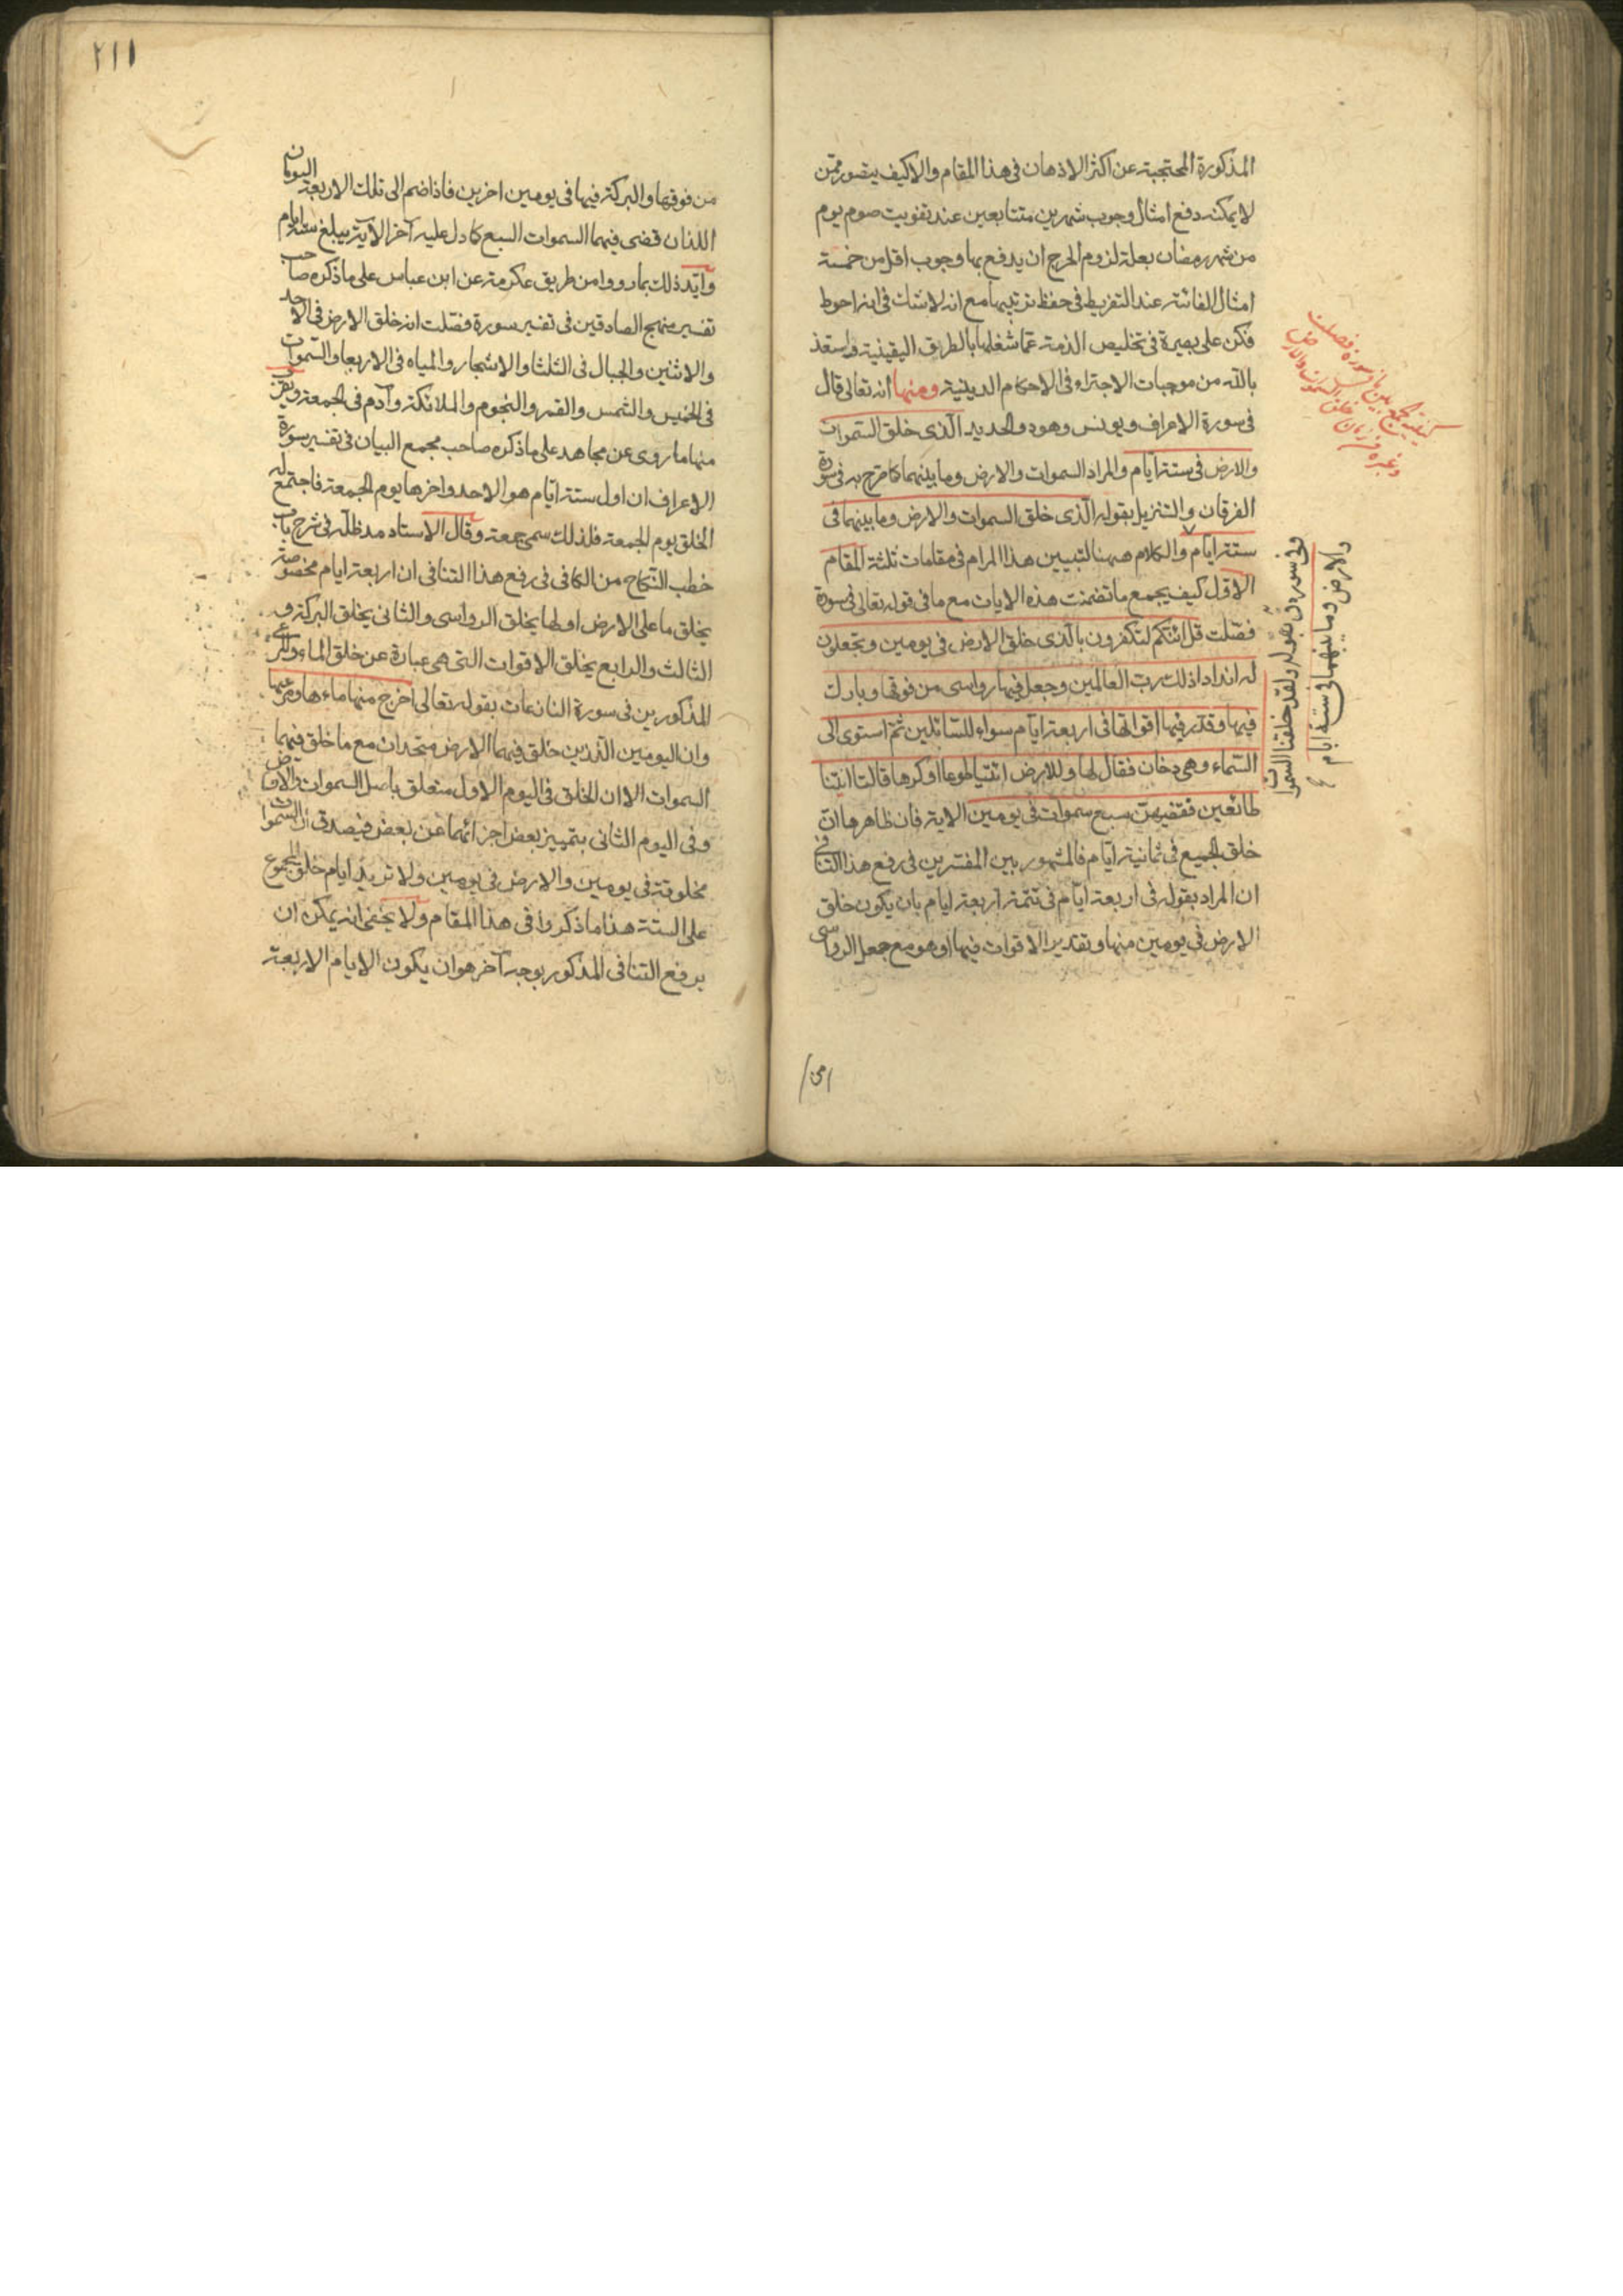 المذكورة المحتجبة عن اكثر الاذهان فى هذا المقام والا كيف يتصور ممن
لا يمكنه دفع امثال وجوب شهرين متتابعين عند تفويت صوم يوم
من شهر رمضان بعلة لزوم الحرج ان يدفع بها وجوب اقل من خمسة
امثال الفائتة عند التفريط فى حفظ ترتيبها مع انه لا شك فى انه احوط
فكن على بصيرة فى تخليص الذمة عما شغلها بالطريق اليقينية واستعذ
بالله من موجبات الاجتراء فى الاحكام الدينية ومنها انه تعالى قال
فى سورة الاعراف ويونس وهود والحديد الذى خلق السموات
والارض فى ستة ايام والمراد السموات والارض وما بينهما كما صرح به فى سورة
الفرقان والتنزيل بقوله الذى خلق السموات والارض وما بينهما فى
ستة ايام والكلام ههنا لتبيين هذا المرام فى مقامات ثلثة المقام
الاول كيف يجمع ما تضمنت هذه الايات مع ما فى قوله تعالى فى سورة
فصلت قل ائنكم لتكفرون بالذى خلق الارض فى يومين وتجعلون
له اندادا ذلك رب العالمين وجعل فيها رواسى من فوقها وبارك
فيها وقدر فيها اقواتها فى اربعة ايام سواء للسائلين ثم استوى الى
السماء وهى دخان فقال لها وللارض ائتيا طوعا او كرها قالتا اتينا
طائعين فقضيهن سبع سموات فى يومين الاية فان ظاهرها ان
خلق الجميع فى ثمانية ايام فالمشهور بين المفسرين فى رفع هذا التنافى
ان المراد بقوله فى اربعة ايام فى تتمة اربعة ايام بان يكون خلق
الارض فى يومين منها وتقدير الاقوات فيها او هو مع جعل الرواسى
من
وفى سورة ق بقوله ولقد خلقنا السموات
والارض وما بينهما فى ستة ايام
كيفية الجمع بين ما فى سورة فصلت
وغيره فى زمان خلق السموات والارض
٢١١
من فوقها والبركة فيها فى يومين اخرين فاذا ضم الى تلك الاربعة اليومان
اللذان قضى فيهما السموات السبع كما دل عليه آخر الآية يبلغ ستة ايام
وايد ذلك بما رووا من طريق عكرمة عن ابن عباس على ما ذكره صاحب
تفسير منهج الصادقين فى تفسير سورة فصلت انه خلق الارض فى الاحد
والاثنين والجبال فى الثلثا والاشجار والمياه فى الاربعا والسموات
فى الخميس والشمس والقمر والنجوم والملائكة وآدم فى الجمعة ويقرب
منها ما روى عن مجاهد على ما ذكره صاحب مجمع البيان فى تفسير سورة
الاعراف ان اول ستة ايام هو الاحد واخرها يوم الجمعة فاجتمع له
الخلق يوم الجمعة فلذلك سمى جمعة وقال الاستاد مد ظله فى شرح باب
خطب النكاح من الكافى فى رفع هذا التنافى ان اربعة ايام مخصوصة
بخلق ما على الارض اولها بخلق الرواسى والثانى بخلق البركة و
الثالث والرابع بخلق الاقوات التى هى عبارة عن خلق الماء والمرعى
المذكورين فى سورة النازعات بقوله تعالى اخرج منها ماءها ومرعيها
وان اليومين الذين خلق فيهما الارض متحدان مع ما خلق فيهما
السموات الا ان الخلق فى اليوم الاول متعلق باصل السموات والارض
وفى اليوم الثانى بتمييز بعض اجزائهما عن بعض فيصدق ان السموات
مخلوقة فى يومين والارض فى يومين ولا تزيد ايام خلق المجموع
على الستة هذا ما ذكروا فى هذا المقام ولا يخفى انه يمكن ان
يرفع التنافى المذكور بوجه آخر هو ان يكون الايام الاربعة